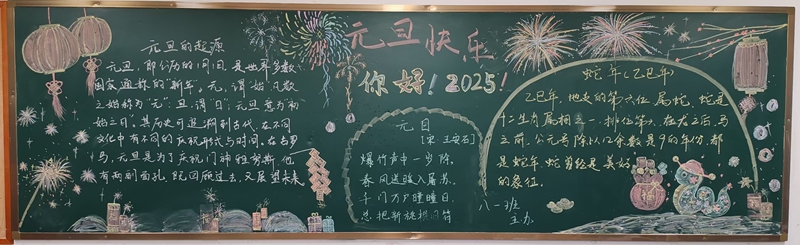 元旦的起源
元旦,即公历的1月1日,是世界多数
国家通称的“新年”。元,谓“始”,旦,数
之始称为“元”。旦,谓“日”;元旦意为“初
始之日”。其历史可追溯到古代,在不同
文化中有不同的庆祝形式与时间。在古罗
马,元旦是为了庆祝门神雅努斯,他
有两副面孔,既回顾过去,又展望未来
元旦快乐
你好!2025!
元日
[宋 王安石]
爆竹声中一岁除,
春风送暖入屠苏。
千门万户曈曈日,
总把新桃换旧符
蛇年(乙巳年)
乙巳年,地支的第六位,属蛇,蛇是
十二生肖属相之一,排位第六,在龙之后,马
之前,公元号除以12余数是9的年份,都
是蛇年,蛇曾经是美好
的象征。
八一班
主办